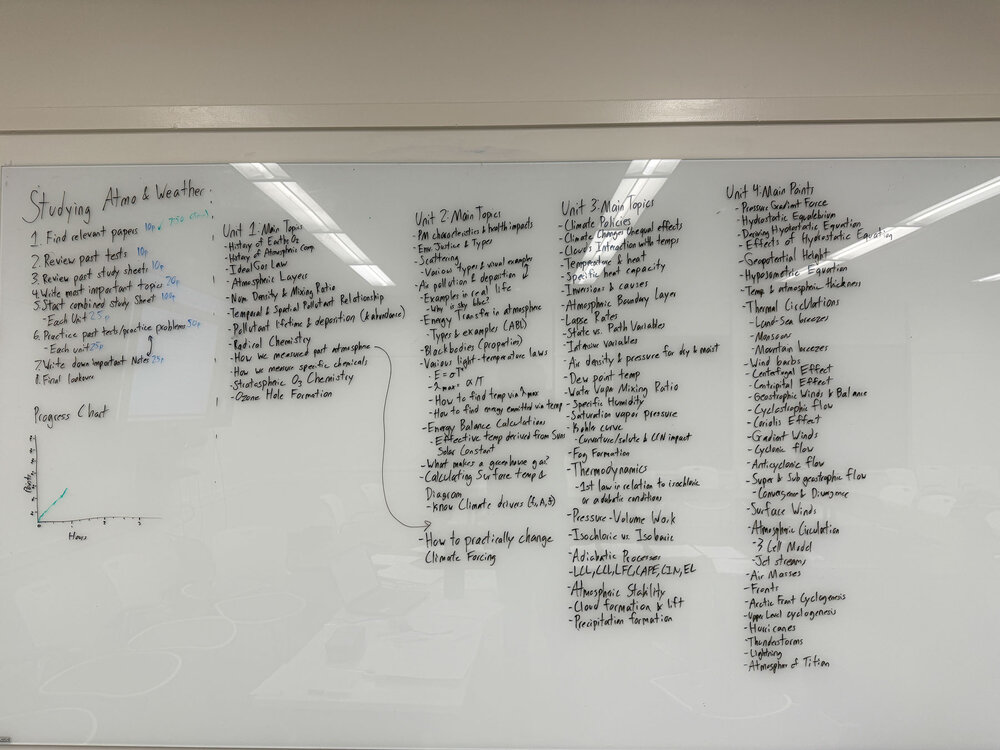 Studying Atmo & Weather
1. Find relevant papers 10p
2. Review past tests 10p
3. Review past study sheets 10p
4. Write most important topics 20p
5. Start combined study Sheet 100p
- Each Unit 25p
6. Practice past tests/practice problems 50p
- Each unit 25p
7. Write down important Notes 25p
8. Final
Progress Chart
Points
0 1 2 3
Hours
Unit 1: Main Topics
- History of Earths O2
- History of Atmospheric comp.
- Ideal Gas Law
- Atmospheric Layers
- Num Density & Mixing Ratio
- Temporal & Spatial Pollutant Relationship
- Pollutant lifetime & deposition (& abundance)
- Radical Chemistry
- How we measured past atmosphere
- How we measure specific chemicals
- Stratospheric O3 Chemistry
- Ozone Hole Formation
Unit 2: Main Topics
- PM characteristics & health impacts
- Env. Justice & Types
- Scattering
- Various types & visual examples
- Air pollution & deposition of
- Examples in real life
- Why is sky blue?
- Energy Transfer in atmosphere
- Types & examples (ABL)
- Blackbodies (properties)
- Various light-temperature laws
- E = σT⁴
- λmax = α/T
- How to find temp via λmax
- How to find energy emmitted via temp
- Energy Balance Calculations
- Effective temp derived from Suns
Solar Constant
- What makes a greenhouse gas?
- Calculating Surface temp &
Diagram
- Know Climate drivers
- How to practically change
Climate Forcing
Unit 3: Main Topics
- Climate Policies
- Climate Changes Unequal effects
- Clouds Interaction with temps
- Temperature & heat
- Specific heat capacity
- Inversions & causes
- Atmospheric Boundary Layer
- Lapse Rates
- State vs. Path Variables
- Intensive variables
- Air density & pressure for dry & moist
- Dew point temp
- Water Vapor Mixing Ratio
- Specific Humidity
- Saturation vapor pressure
- Kohler curve
- Curvature/solute & CCN impact
- Fog Formation
- Thermodynamics
- 1st law in relation to isochoric
or adabatic conditions
- Pressure-Volume Work
- Isochloric vs. Isobaric
- Adiabatic Processes
- LCL, CCL, LFC, CAPE, CIN, EL
- Atmospheric Stability
- Cloud formation & lift
- Precipitation formation
Unit 4: Main Points
- Pressure Gradient Force
- Hydrostatic Equalibrium
- Drawing Hydrostatic Equation
- Effects of Hydrostatic Equation
- Geopotential Height
- Hypsometric Equation
- Temp & atmospheric thickness
- Thermal Circulations
- Land-Sea breezes
- Monsoon
- Mountain breezes
- Wind barbs
- Centerfugal Effect
- Centripital Effect
- Geostrophic Winds & Balance
- Cyclostrophic flow
- Coriolis Effect
- Gradient Winds
- Cyclonic flow
- Anticyclonic flow
- Super & Sub geostrophic flow
- Convergence & Divergence
- Surface Winds
- Atmospheric Circulation
- 3 Cell Model
- Jet streams
- Air Masses
- Fronts
- Arctic Front Cyclogenesis
- Upper Level cyclogenesis
- Hurricanes
- Thunderstorms
- Lightning
- Atmosphere of Titian